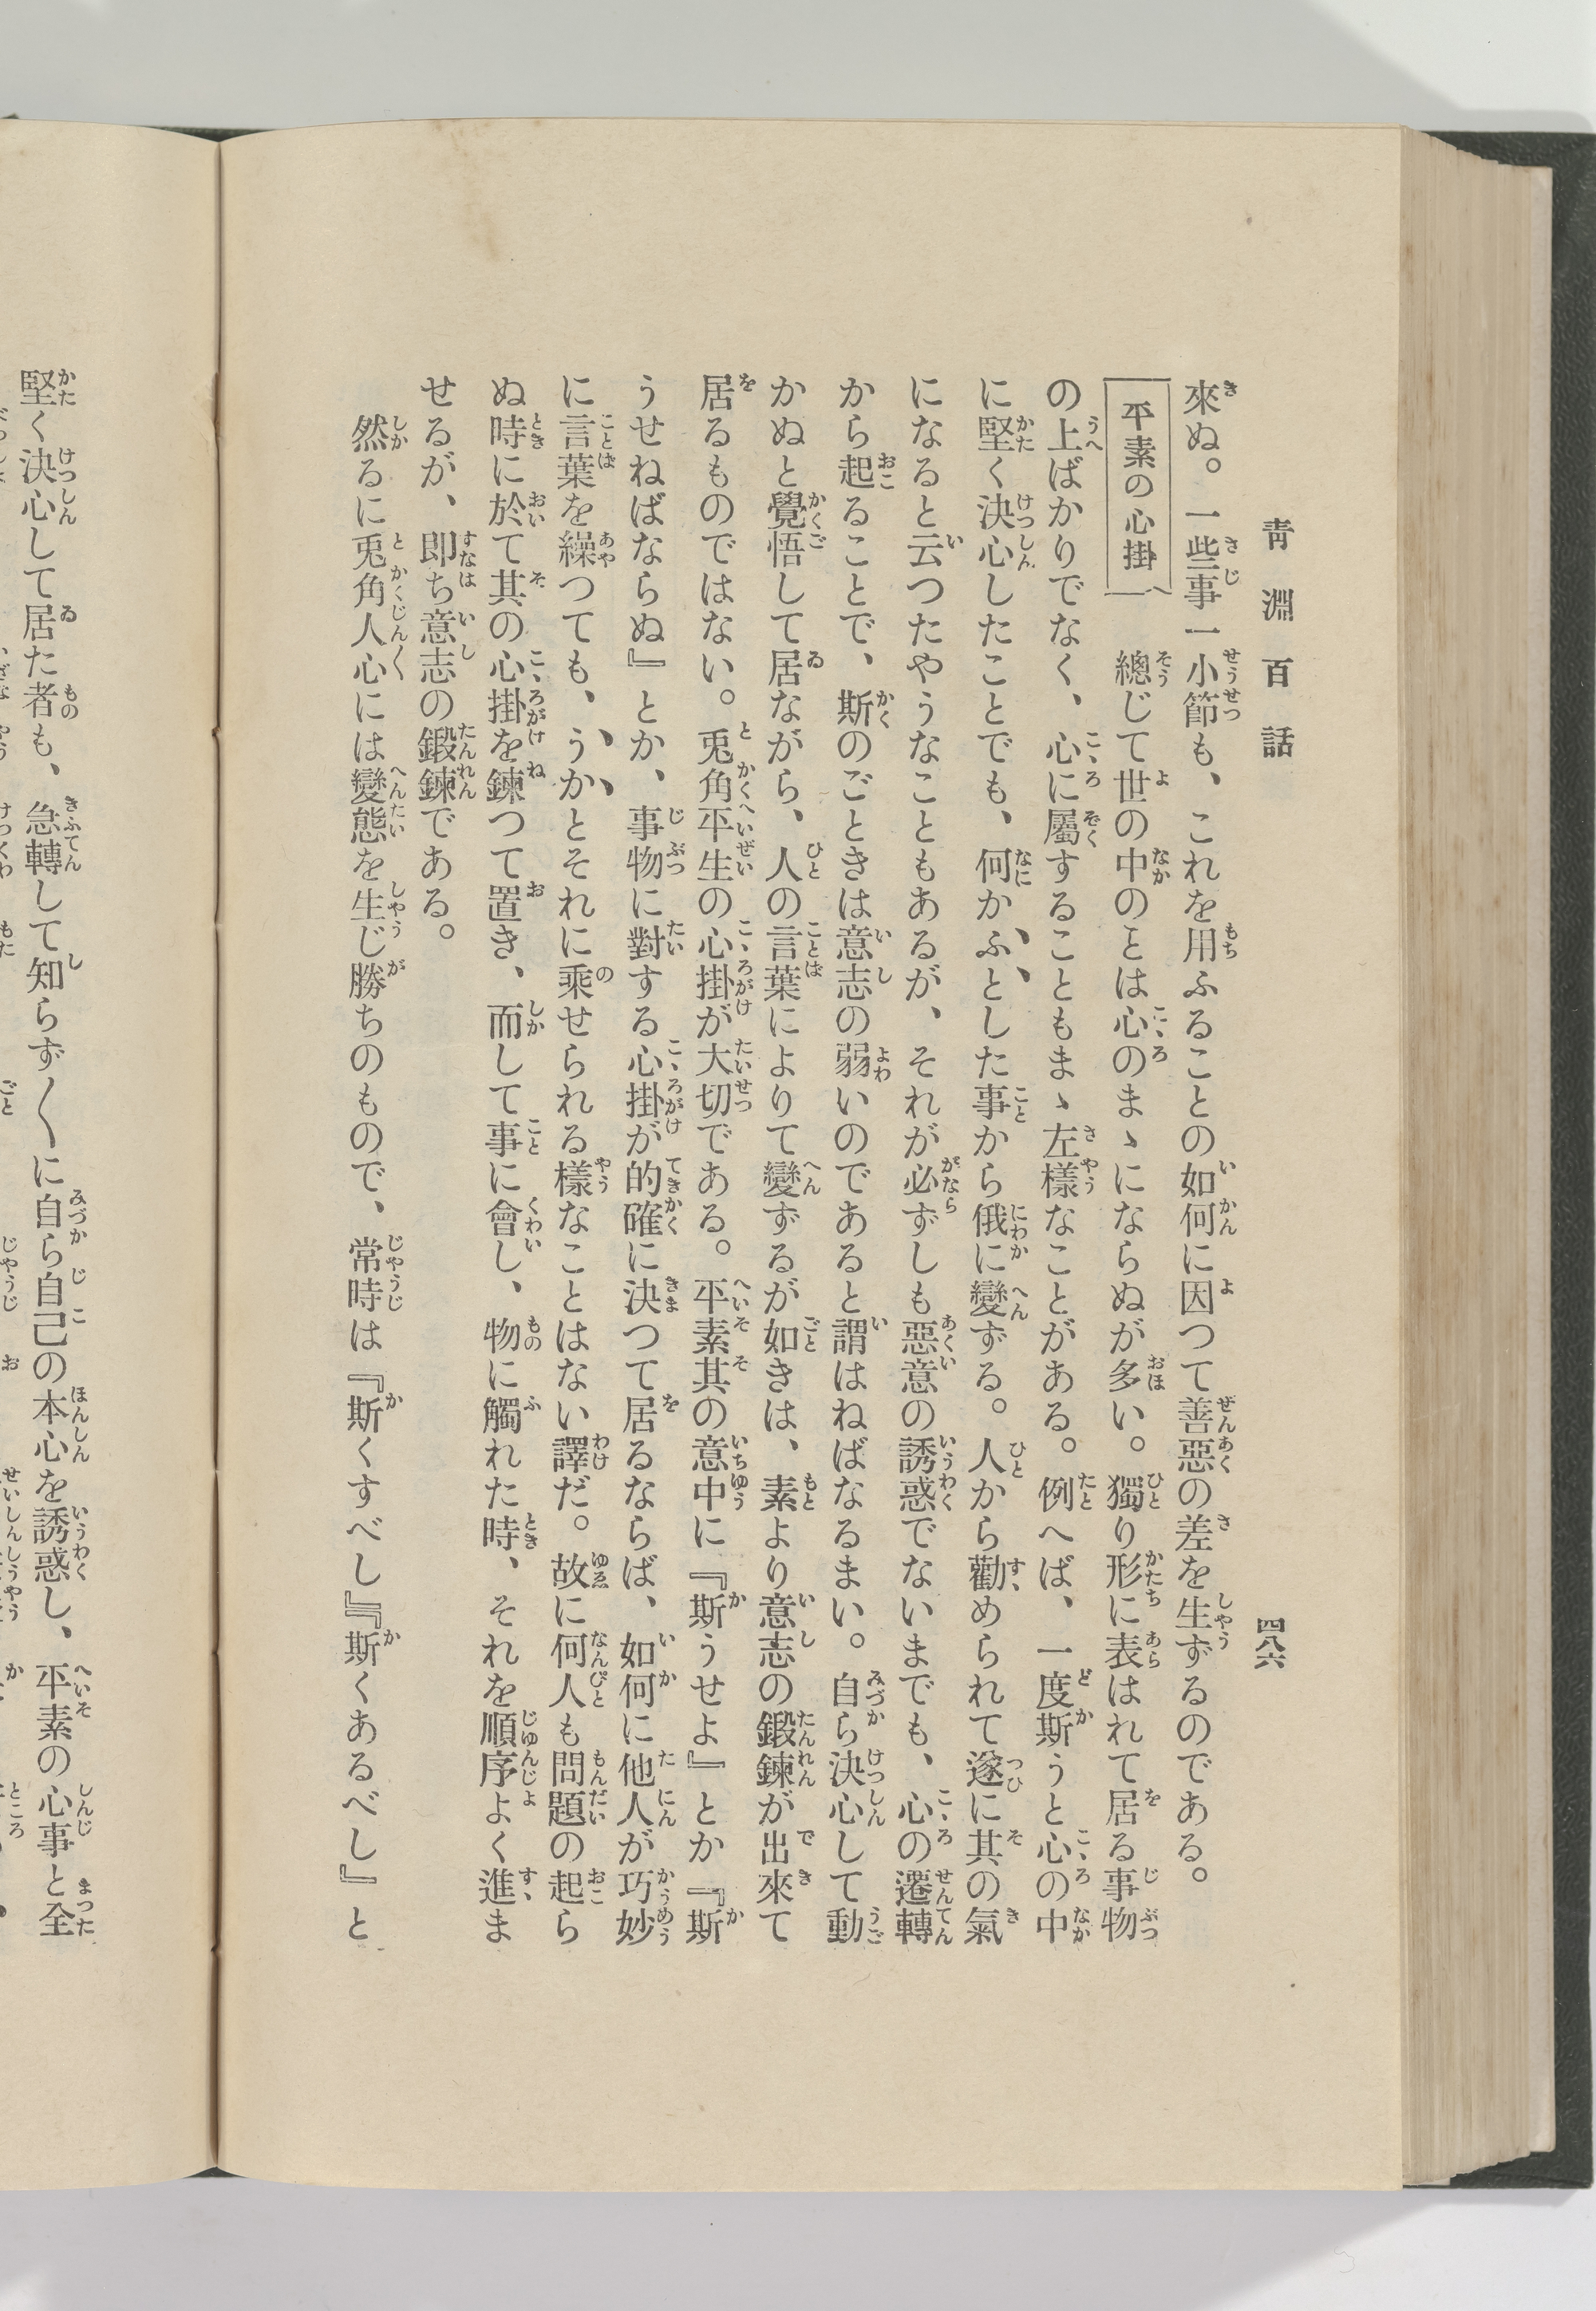 靑淵百話
四八六
來ぬ。一些事一小節も、これを用ふることの如何に因つて善惡の差を生ずるのである。
平素の心掛
總じて世の中のことは心のまゝにならぬが多い。獨り形に表はれて居る事物
の上ばかりでなく、心に屬することもまゝ左樣なことがある。例へば、一度斯うと心の中
に堅く決心したことでも、何かふとした事から俄に變ずる。人から勸められて遂に其の氣
になると云つたやうなこともあるが、それが必ずしも惡意の誘惑でないまでも、心の遷轉
から起ることで、斯のごときは意志の弱いのであると謂はねばなるまい。自ら決心して動
かぬと覺悟して居ながら、人の言葉によりて變ずるが如きは、素より意志の鍛鍊が出來て
居るものではない。兎角平生の心掛が大切である。平素其の意中に『斯うせよ』とか『斯
うせねばならぬ』とか、事物に對する心掛が的確に決つて居るならば、如何に他人が巧妙
に言葉を繰つても、うかとそれに乘せられる樣なことはない譯だ。故に何人も問題の起ら
ぬ時に於て其の心掛を鍊つて置き、而して事に會し、物に觸れた時、それを順序よく進ま
せるが、卽ち意志の鍛鍊である。
然るに兎角人心には變態を生じ勝ちのもので、常時は『斯くすべし』『斯くあるべし』と
堅く決心して居た者も、急轉して知らず〱に自ら自己の本心を誘惑し、平素の心事と全